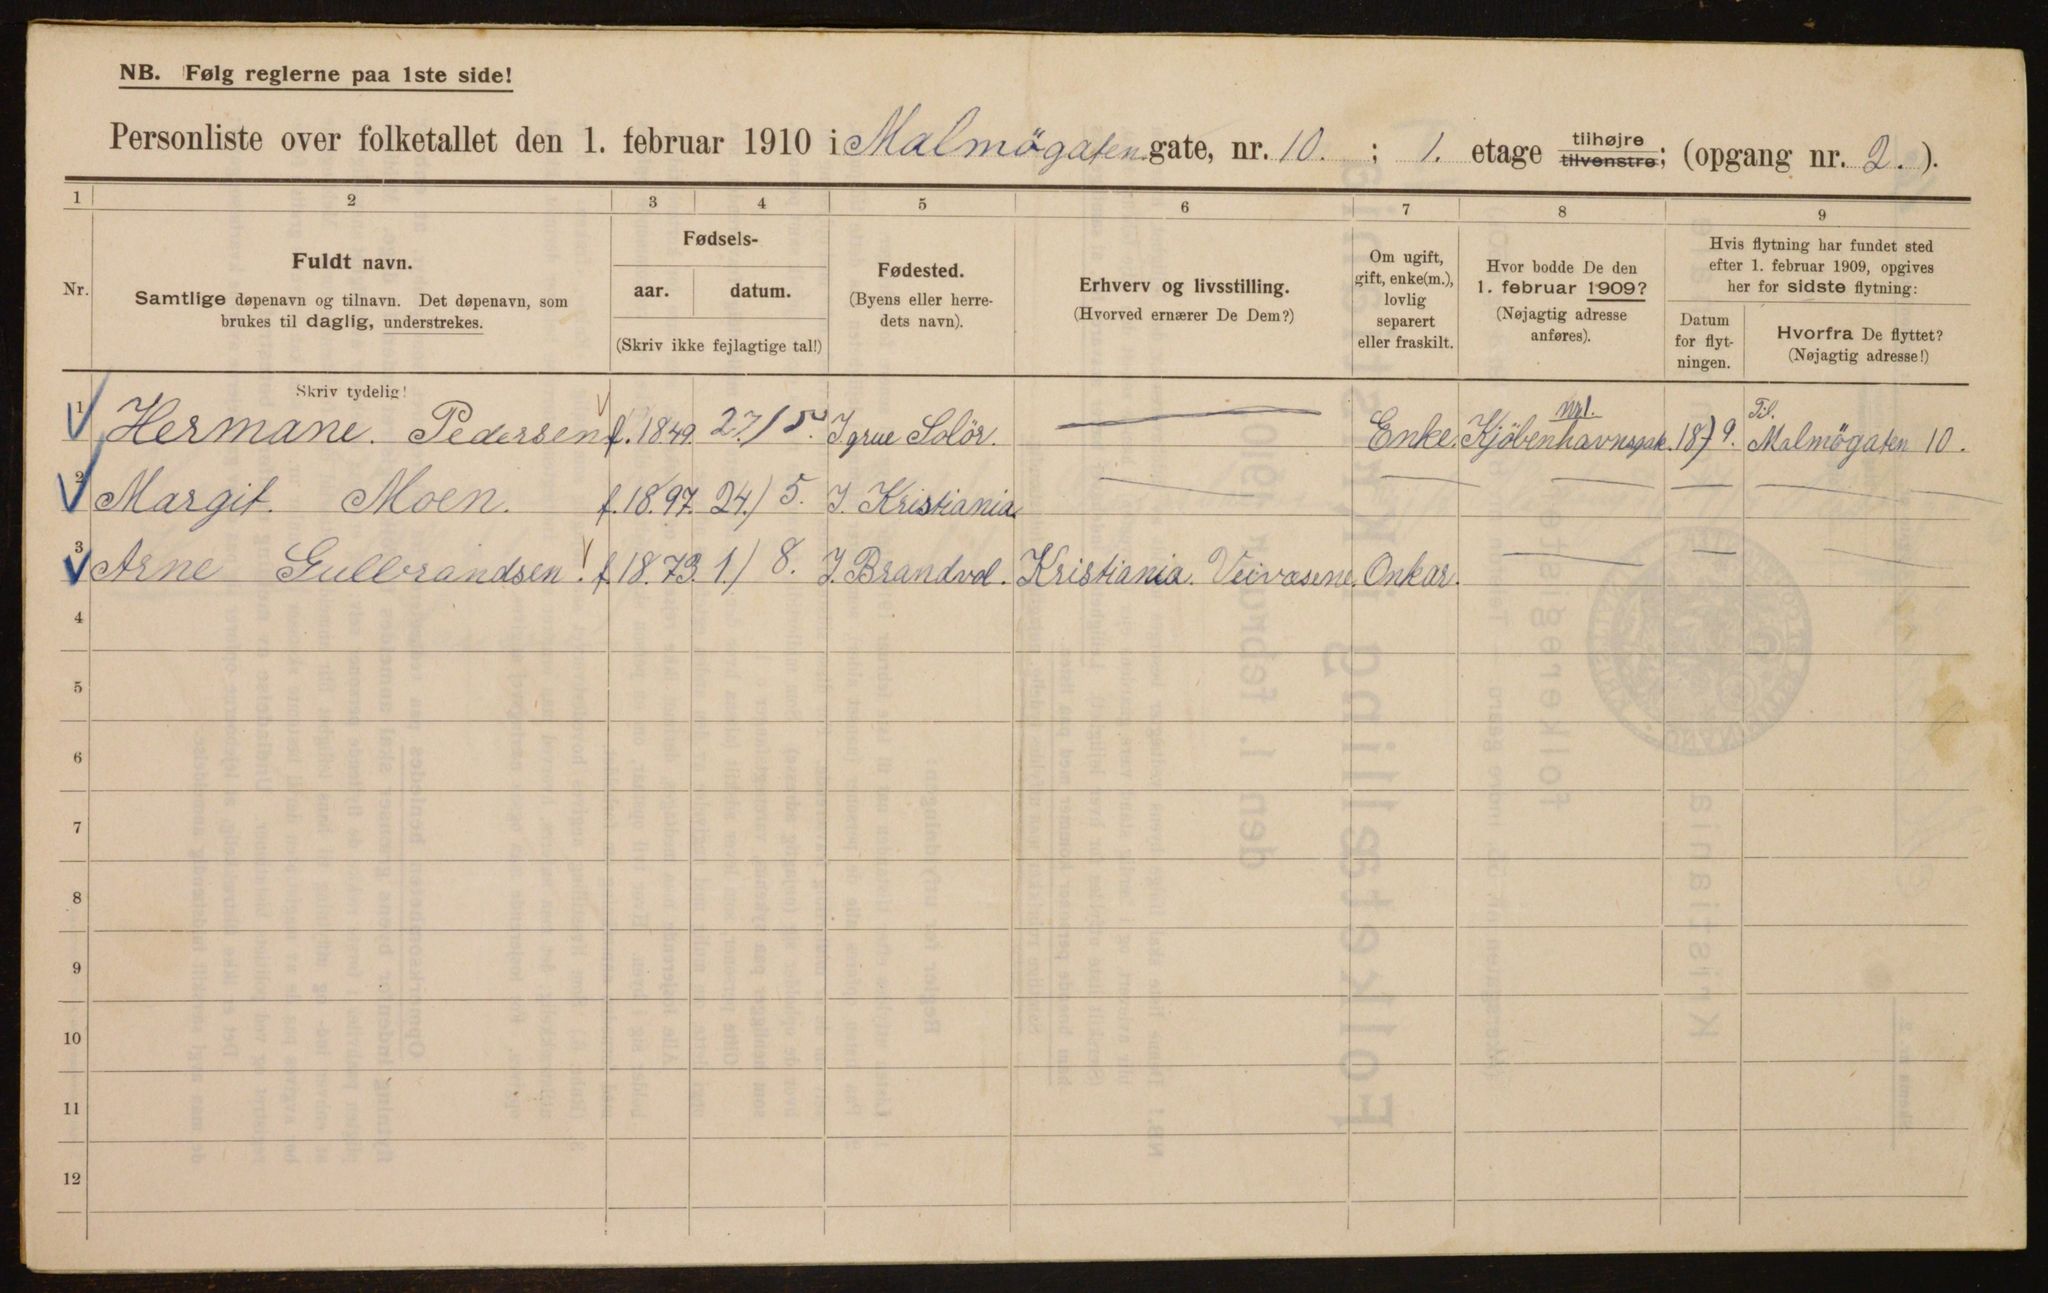 NB. Følg reglerne paa 1ste side!
Personliste over folketallet den 1. februar 1910 i Malmøgaten gate, nr. 10. ; 1. etage tilhøjre tilvenstre; (opgang nr. 2. ).
1 2 3 4 5 6 7 8 9
Nr.
Fuldt navn.
Samtlige døpenavn og tilnavn. Det døpenavn, som
brukes til daglig, understrekes.
Fødsels-
aar. datum.
(Skriv ikke fejlagtige tal!)
Fødested.
(Byens eller herre-
dets navn).
Erhverv og livsstilling.
(Hvorved ernærer De Dem?)
Om ugift,
gift, enke(m.),
lovlig
separert
eller fraskilt.
Hvor bodde De den
1. februar 1909?
(Nøjagtig adresse
anføres).
Hvis flytning har fundet sted
efter 1. februar 1909, opgives
her for sidste flytning:
Datum
for flyt-
ningen.
Hvorfra De flyttet?
(Nøjagtig adresse!)
Skriv tydelig!
1 Hermane. Pedersen f. 1849. 27/5. I grue Solör. Enke. 18/9. Til. Malmögaten 10.
2 Margit. Moen. f. 18.97. 24./5. I. Kristiania.
3 Arne Gulbrandsen! f. 18.73. 1./8. I. Brandvol. Kristiania. Veivæsene. Onkar.
4
5
6
7
8
9
10
11
12